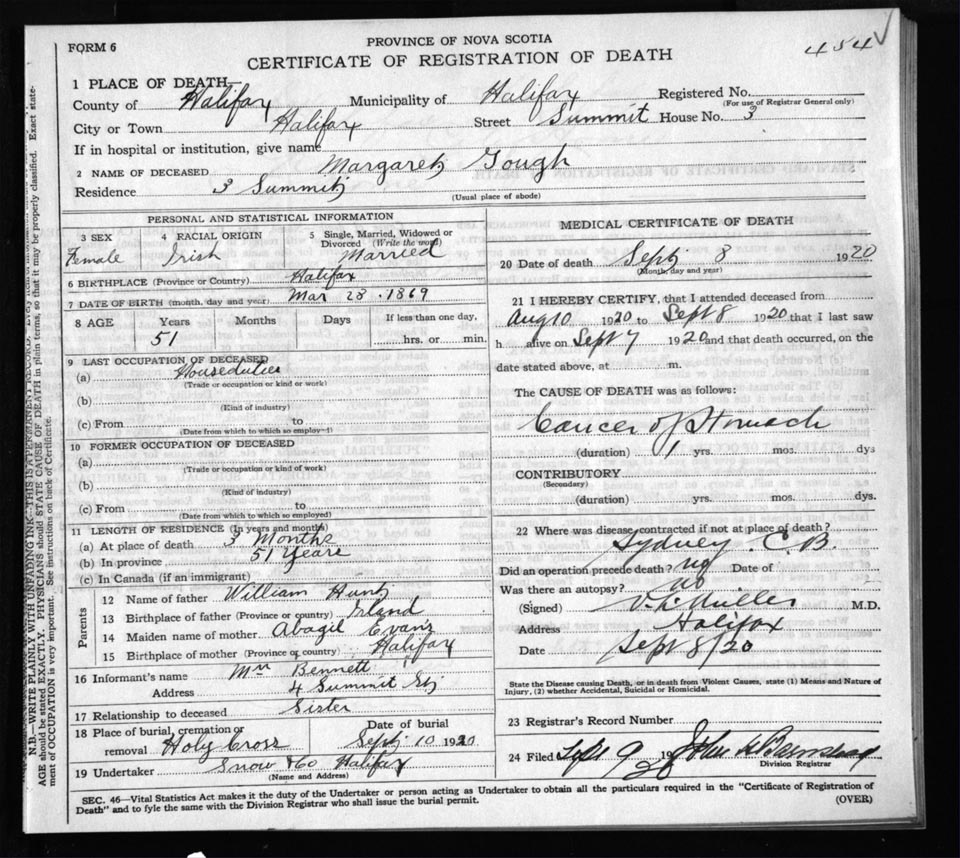 FORM 6
PROVINCE OF NOVA SCOTIA
454
CERTIFICATE OF REGISTRATION OF DEATH
1 PLACE OF DEATH—
County of Halifax Municipality of Halifax Registered No.
(For use of Registrar General only)
City or Town Halifax Street Summit House No. 3
If in hospital or institution, give name
2 NAME OF DECEASED Margaret Gough
Residence 3 Summit
(Usual place of abode)
PERSONAL AND STATISTICAL INFORMATION
3 SEX 4 RACIAL ORIGIN 5 Single, Married, Widowed or Divorced (Write the word)
Female Irish Married
6 BIRTHPLACE (Province or Country) Halifax
7 DATE OF BIRTH (month, day and year) Mar 28. 1869
8 AGE Years Months Days If less than one day,
51 hrs. or min.
9 LAST OCCUPATION OF DECEASED
(a) Houseduties
(Trade or occupation or kind or work)
(b)
(Kind of industry)
(c) From to
(Date from which to which so employed)
10 FORMER OCCUPATION OF DECEASED
(a)
(Trade or occupation or kind of work)
(b)
(Kind of industry)
(c) From to
(Date from which to which so employed)
11 LENGTH OF RESIDENCE (In years and months)
(a) At place of death 3 Months
(b) In province 51 years
(c) In Canada (if an immigrant)
Parents
12 Name of father William Hunt
13 Birthplace of father (Province or country) Irland
14 Maiden name of mother Abagil Evans
15 Birthplace of mother (Province or country) Halifax
16 Informant's name Mrs Bennett
Address 4 Summit St
17 Relationship to deceased Sister
18 Place of burial, cremation or removal Holy Cross Date of burial Sept 10 1920
19 Undertaker Snow & Co Halifax
(Name and Address)
MEDICAL CERTIFICATE OF DEATH
20 Date of death Sept 8 1920
(Month, day and year)
21 I HEREBY CERTIFY, that I attended deceased from
Aug 10 1920 to Sept 8 1920 that I last saw
h alive on Sept 7 1920 and that death occurred, on the
date stated above, at m.
The CAUSE OF DEATH was as follows:
Cancer of Stomach
(duration) 1 yrs. mos. dys
CONTRIBUTORY
(Secondary)
(duration) yrs. mos. dys.
22 Where was disease contracted if not at place of death?
Sydney. C.B.
Did an operation precede death? no Date of
Was there an autopsy? no
(Signed) M.D.
Address Halifax
Date Sept 8/20
State the Disease causing Death, or in death from Violent Causes, state (1) Means and Nature of
Injury, (2) whether Accidental, Suicidal or Homicidal.
23 Registrar's Record Number
24 Filed Sept 9 1920 John
Division Registrar
SEC. 46—Vital Statistics Act makes it the duty of the Undertaker or person acting as Undertaker to obtain all the particulars required in the "Certificate of Registration of
Death" and to fyle the same with the Division Registrar who shall issue the burial permit.
(OVER)
N.B.—WRITE PLAINLY WITH UNFADING INK—THIS IS A PERMANENT RECORD.
AGE should be stated EXACTLY. PHYSICIANS should STATE CAUSE OF DEATH in plain terms, so that it may be properly classified. Exact state-
ment of OCCUPATION is very important. See instructions on back of Certificate.